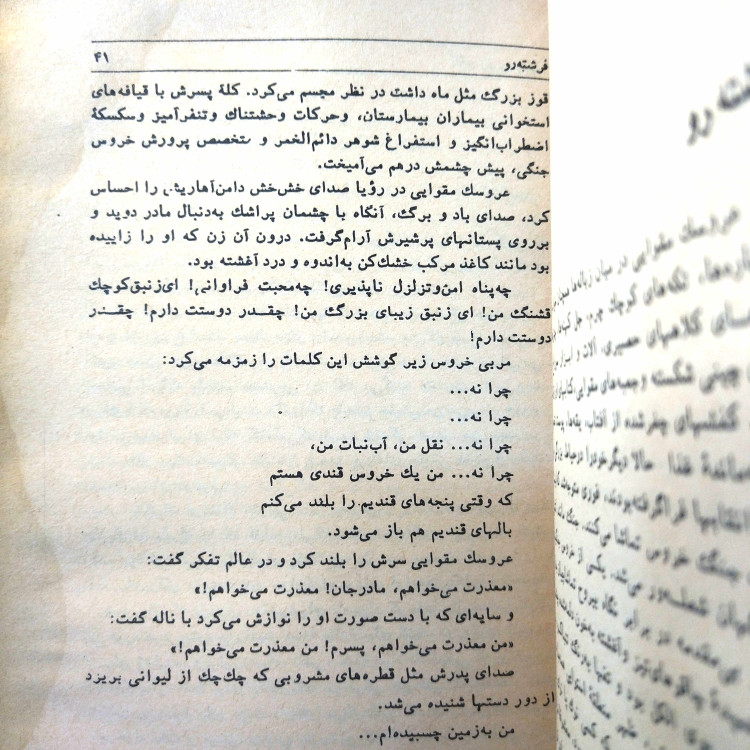 فرشته‌رو
۴۱
قوز بزرگ مثل ماه داشت در نظر مجسم می‌کرد. کلهٔ پسرش با قیافه‌های
استخوانی بیماران بیمارستان، وحرکات وحشتناك وتنفرآمیز وسکسکهٔ
اضطراب‌انگیز و استفراغ شوهر دائم‌الخمر و متخصص پرورش خروس
جنگی، پیش چشمش درهم می‌آمیخت.
عروسك مقوایی در رؤیا صدای خش‌خش دامن‌آهاریش را احساس
کرد، صدای باد و برگ، آنگاه با چشمان پراشك به‌دنبال مادر دوید و
برروی پستانهای پرشیرش آرام‌گرفت. درون آن زن که او را زاییده
بود مانند کاغذ مرکب خشك‌کن به‌اندوه و درد آغشته بود.
چه‌پناه امن‌وتزلزل ناپذیری! چه‌محبت فراوانی! ای‌زنبق‌کوچك
قشنگ من! ای زنبق زیبای بزرگ من! چقـدر دوستت دارم! چقـدر
دوستت دارم!
مربی خروس زیر گوشش این کلمات را زمزمه می‌کرد:
چرا نه...
چرا نه...
چرا نه... نقل من، آب‌نبات من،
چرا نه... من یك خروس قندی هستم
که وقتی پنجه‌های قندیم را بلند می‌کنم
بالهای قندیم هم باز می‌شود.
عروسك مقوایی سرش را بلند کرد و در عالم تفکر گفت:
«معذرت می‌خواهم، مادرجان! معذرت می‌خواهم!»
و سایه‌ای که با دست صورت او را نوازش می‌کرد با ناله گفت:
«من معذرت می‌خواهم، پسرم! من معذرت می‌خواهم!»
صدای پدرش مثل قطره‌های مشروبی که چك‌چك از لیوانی بریزد
از دور دستها شنیده می‌شد.
من به‌زمین چسبیده‌ام...
عروسك مقوایی در میان زباله‌ها
تکه‌های کوچك چرم،
کلاههای حصیری، آلات و
چینی شکسته و جعبه‌های مقوایی،
کفشهای چغرشده از آفتاب، یقه‌ها،
غذا حالا دیگر خود را
جنگ خروس تماشا می‌کند.